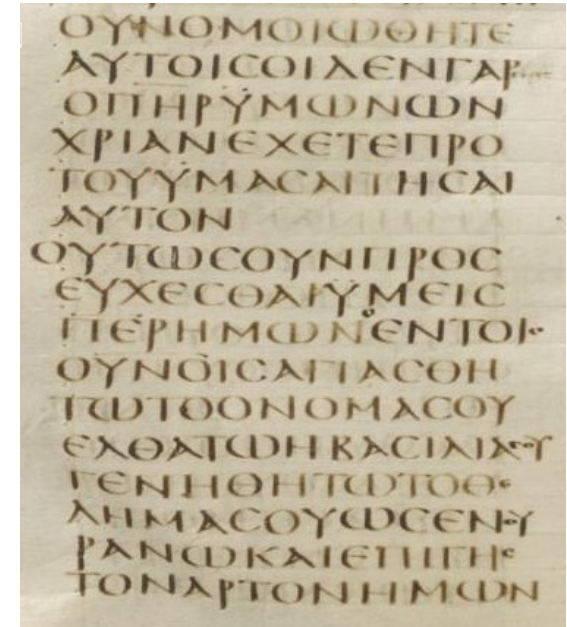 ΟΥΝΟΜΟΙΩΘΗΤΕ
ΑΥΤΟΙϹΟΙΔΕΝΓΑΡ
ΟΠΗΡΫΜΩΝΩΝ
ΧΡΙΑΝΕΧΕΤΕΠΡΟ
ΤΟΥΫΜΑϹΑΙΤΗϹΑΙ
ΑΥΤΟΝ
ΟΥΤΩϹΟΥΝΠΡΟϹ
ΕΥΧΕϹΘΑΙΫΜΕΙϹ
ΠΕΡΗΜΩΝΟΕΝΤΟΙϹ
ΟΥΝΟΙϹΑΓΙΑϹΘΗ
ΤΩΤΟΟΝΟΜΑϹΟΥ
ΕΛΘΑΤΩΗΒΑϹΙΛΙΑϹΟΥ
ΓΕΝΗΘΗΤΩΤΟΘΕ
ΛΗΜΑϹΟΥΩϹΕΝΟΥ
ΡΑΝΩΚΑΙΕΠΙΓΗϹ
ΤΟΝΑΡΤΟΝΗΜΩΝ